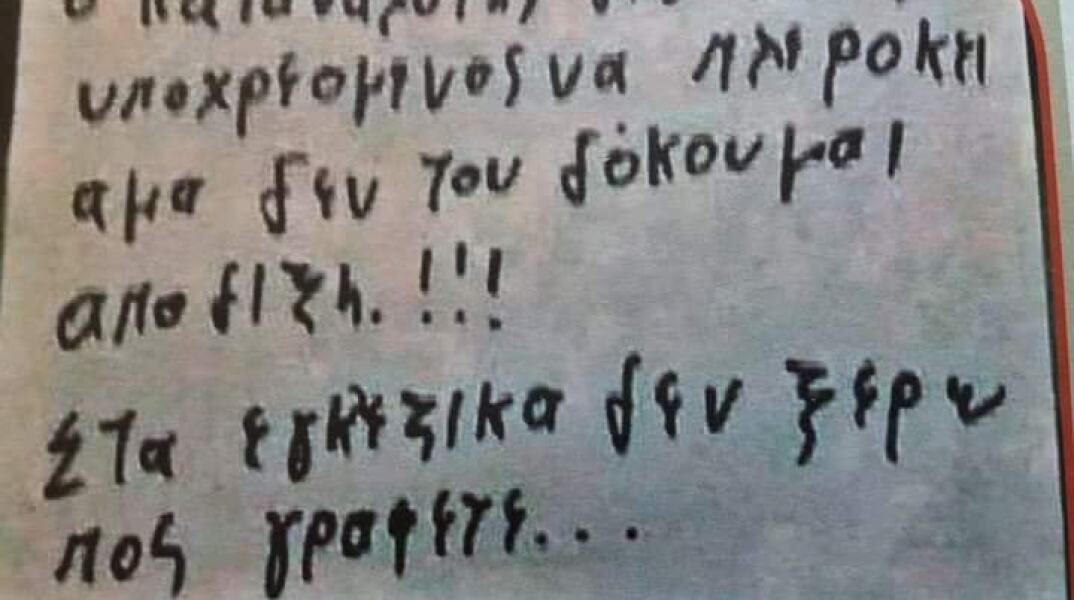 υποχρεομενος να πλεροκει
αμα δεν του δόκουμαι
αποδιξη. !!!
Στα εγκλεξικα δεν ξερω
πος γραφετε...